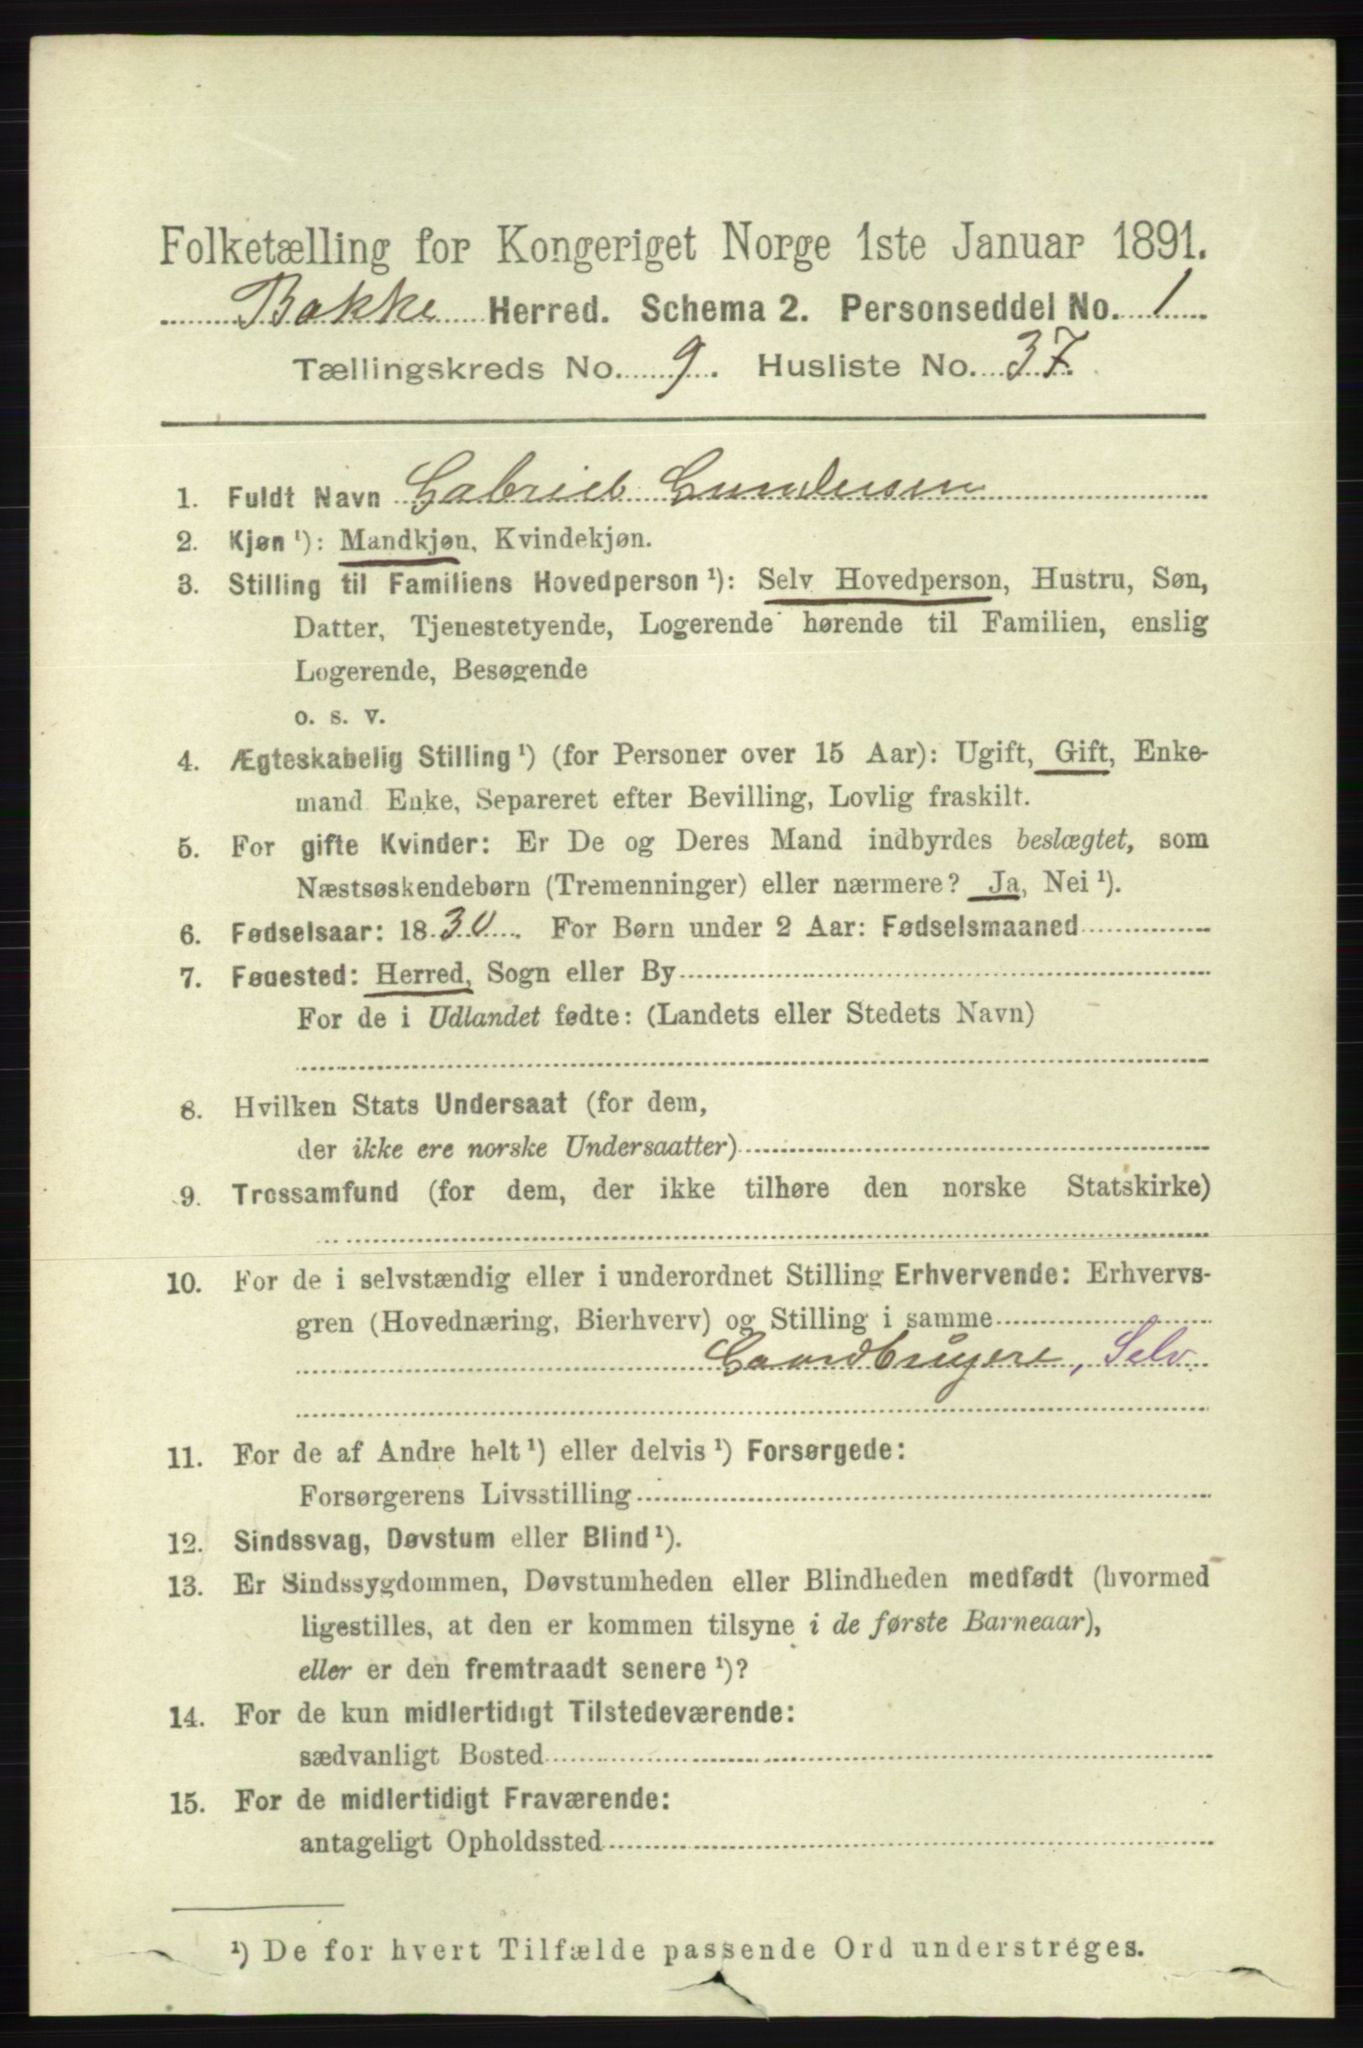 Folketælling for Kongeriget Norge 1ste Januar 1891.
Bakke Herred. Schema 2. Personseddel No. 1
Tællingskreds No. 9. Husliste No. 37.
1. Fuldt Navn Gabriel Gundersen
2. Kjøn ¹): Mandkjøn, Kvindekjøn.
3. Stilling til Familiens Hovedperson ¹): Selv Hovedperson, Hustru, Søn,
Datter, Tjenestetyende, Logerende hørende til Familien, enslig
Logerende, Besøgende
o. s. v.
4. Ægteskabelig Stilling ¹) (for Personer over 15 Aar): Ugift, Gift, Enke-
mand Enke, Separeret efter Bevilling, Lovlig fraskilt.
5. For gifte Kvinder: Er De og Deres Mand indbyrdes beslægtet, som
Næstsøskendebørn (Tremenninger) eller nærmere? Ja, Nei ¹).
6. Fødselsaar: 1830. For Børn under 2 Aar: Fødselsmaaned
7. Fødested: Herred, Sogn eller By
For de i Udlandet fødte: (Landets eller Stedets Navn)
8. Hvilken Stats Undersaat (for dem,
der ikke ere norske Undersaatter)
9. Trossamfund (for dem, der ikke tilhøre den norske Statskirke)
10. For de i selvstændig eller i underordnet Stilling Erhvervende: Erhvervs-
gren (Hovednæring, Bierhverv) og Stilling i samme
Gaardbrugere, Selv.
11. For de af Andre helt ¹) eller delvis ¹) Forsørgede:
Forsørgerens Livsstilling
12. Sindssvag, Døvstum eller Blind ¹).
13. Er Sindssygdommen, Døvstumheden eller Blindheden medfødt (hvormed
ligestilles, at den er kommen tilsyne i de første Barneaar),
eller er den fremtraadt senere ¹)?
14. For de kun midlertidigt Tilstedeværende:
sædvanligt Bosted
15. For de midlertidigt Fraværende:
antageligt Opholdssted
¹) De for hvert Tilfælde passende Ord understreges.